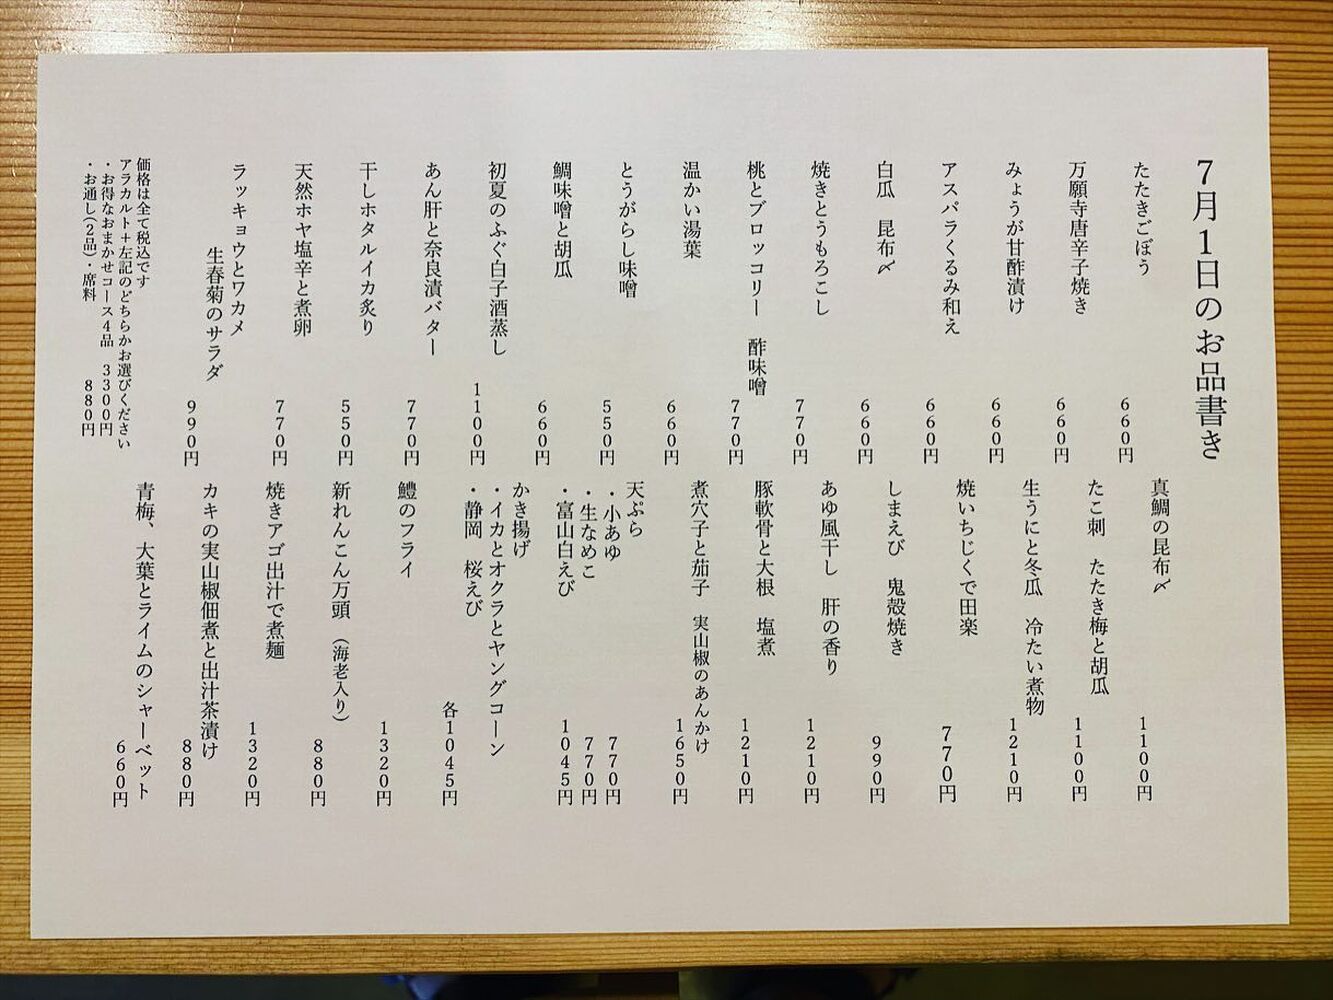 7月1日のお品書き
たたきごぼう
660円
万願寺唐辛子焼き
660円
みょうが甘酢漬け
660円
アスパラくるみ和え
660円
白瓜　昆布〆
660円
焼きとうもろこし
770円
桃とブロッコリー　酢味噌
770円
温かい湯葉
660円
とうがらし味噌
550円
鯛味噌と胡瓜
660円
初夏のふぐ白子酒蒸し
1100円
あん肝と奈良漬バター
770円
干しホタルイカ炙り
550円
天然ホヤ塩辛と煮卵
770円
ラッキョウとワカメ
生春菊のサラダ
990円
価格は全て税込です
アラカルト+左記のどちらかお選びください
・お得なおまかせコース4品　3300円
・お通し(2品)・席料　880円
真鯛の昆布〆
1100円
たこ刺　たたき梅と胡瓜
1100円
生うにと冬瓜　冷たい煮物
1210円
焼いちじくで田楽
770円
しまえび　鬼殻焼き
990円
あゆ風干し　肝の香り
1210円
豚軟骨と大根　塩煮
1210円
煮穴子と茄子　実山椒のあんかけ
1650円
天ぷら
・小あゆ　770円
・生なめこ　770円
・富山白えび　1045円
かき揚げ
・イカとオクラとヤングコーン
・静岡　桜えび
各1045円
鱧のフライ
1320円
新れんこん万頭　(海老入り)
880円
焼きアゴ出汁で煮麺
1320円
カキの実山椒佃煮と出汁茶漬け
880円
青梅、大葉とライムのシャーベット
660円